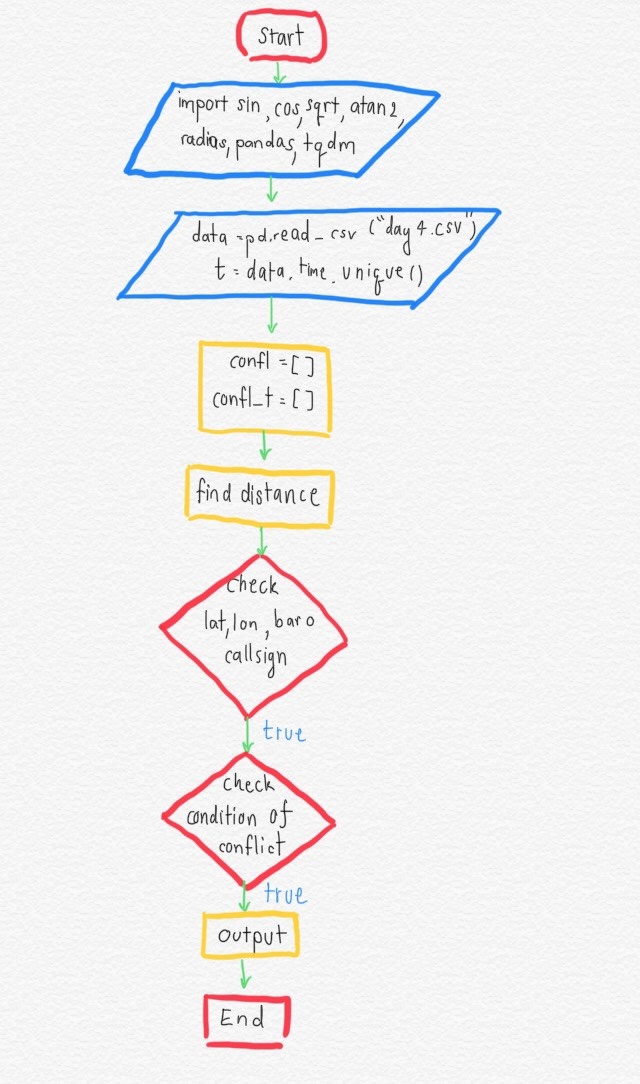 Start
import sin, cos, sqrt, atan2,
radias, pandas, tqdm
data =pd.read_csv ("day4.csv")
t = data. time. unique()
confl =[]
confl_t = []
find distance
check
lat, lon, baro
callsign
true
check
condition of
conflict
true
output
End